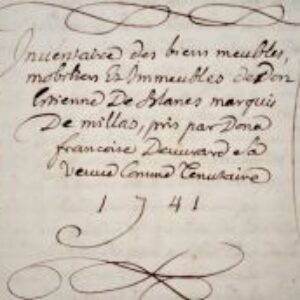 Inventaire des biens meubles,
mobiliers Et Immeubles de Don
Etienne De Blanes marquis
De millas, pris par Dona
francoise
Veuve Comme Tenutaire
1741